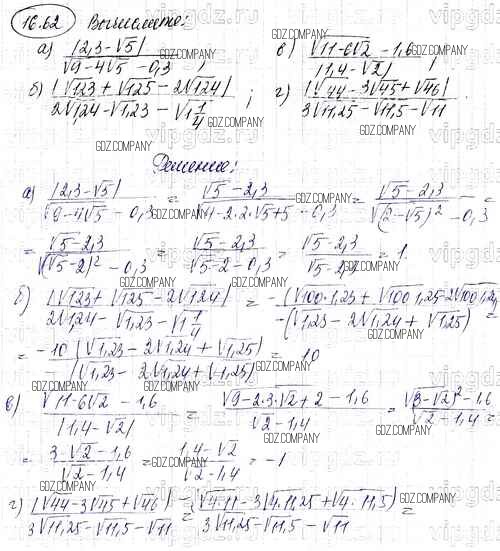 16.62 Вычислите:
а) |2,3-√5| / √(9-4√5) - 0,3 ; в) √(11-6√2) - 1,6 / |1,4-√2| ;
б) |√123 + √125 - 2√124| / 2√1,24 - √1,23 - √(1 1/4) ; г) |√44 - 3√45 + √46| / 3√11,25 - √11,5 - √11 .
Решение:
а) |2,3-√5| / √(9-4√5) - 0,3 = √5-2,3 / √(4-2·2·√5+5) - 0,3 = √5-2,3 / √((2-√5)²) - 0,3 =
= √5-2,3 / √((√5-2)²) - 0,3 = √5-2,3 / √5-2-0,3 = √5-2,3 / √5-2,3 = 1.
б) |√123 + √125 - 2√124| / 2√1,24 - √1,23 - √(1 1/4) = -(√100·1,23 + √100·1,25 - 2√100·1,24) / -(√1,23 - 2√1,24 + √1,25) =
= -10 (√1,23 - 2√1,24 + √1,25) / -(√1,23 - 2√1,24 + √1,25) = 10
в) √(11-6√2) - 1,6 / |1,4-√2| = √(9-2·3·√2+2) - 1,6 / √2-1,4 = √((3-√2)²) - 1,6 / √2-1,4 =
= 3-√2-1,6 / √2-1,4 = 1,4-√2 / √2-1,4 = -1
г) |√44 - 3√45 + √46| / 3√11,25 - √11,5 - √11 = |√4·11 - 3√4·11,25 + √4·11,5| / 3√11,25 - √11,5 - √11 =
GDZ.COMPANY
vipgdz.com